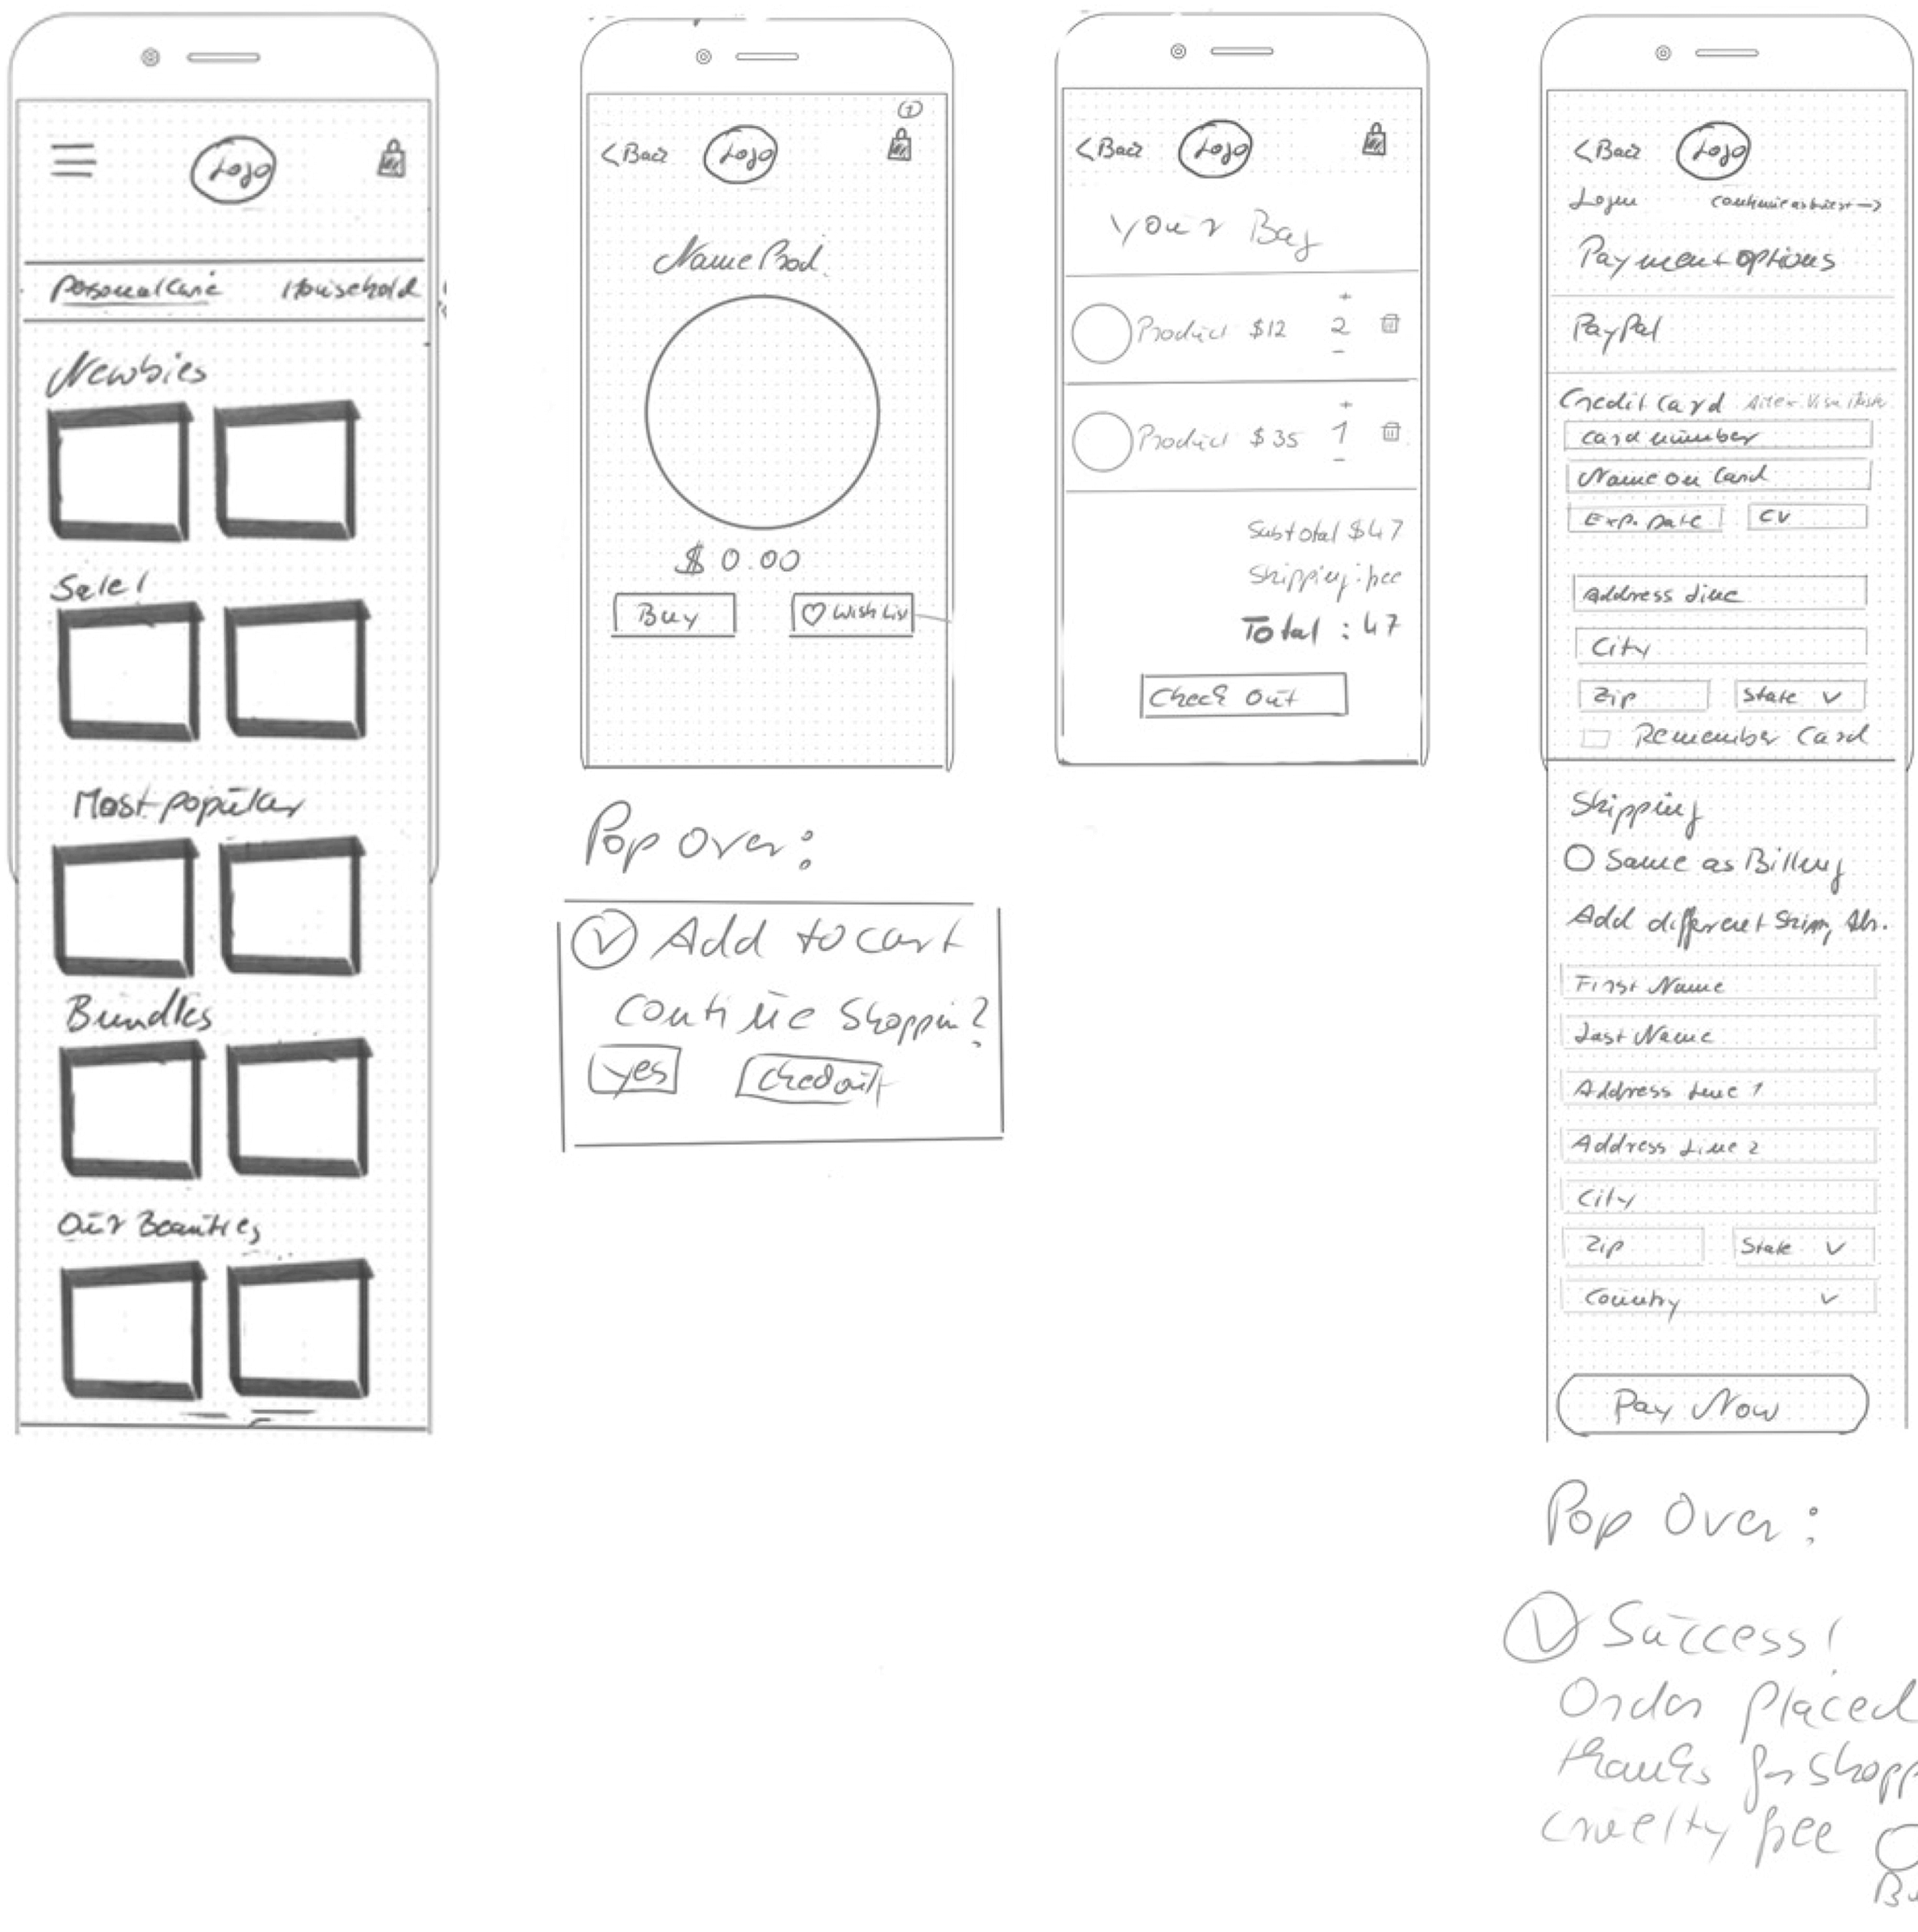 Logo
Personal Care Household
Newbies
Sale!
Most popular
Bundles
Our Beauties
1
< Back Logo
Name Prod.
$ 0.00
Buy
♡ Wish List
Pop Over:
Add to cart
Continue Shoppin?
Yes
Checkout
< Back Logo
Your Bag
+
Product $12 2
-
+
Product $35 1
-
Subtotal $47
Shipping: free
Total: 47
Check Out
< Back Logo
Login Continue as Guest →
Payment options
PayPal
Credit Card Amex Visa
Card number
Name on Card
Exp. Date CV
Address Line
City
Zip State
Remember Card
Shipping
Same as Billing
Add different
First Name
Last Name
Address Line 1
Address Line 2
City
Zip State
Country
Pay Now
Pop Over:
Success!
Order Placed
thanks for Shopp
cruelty free